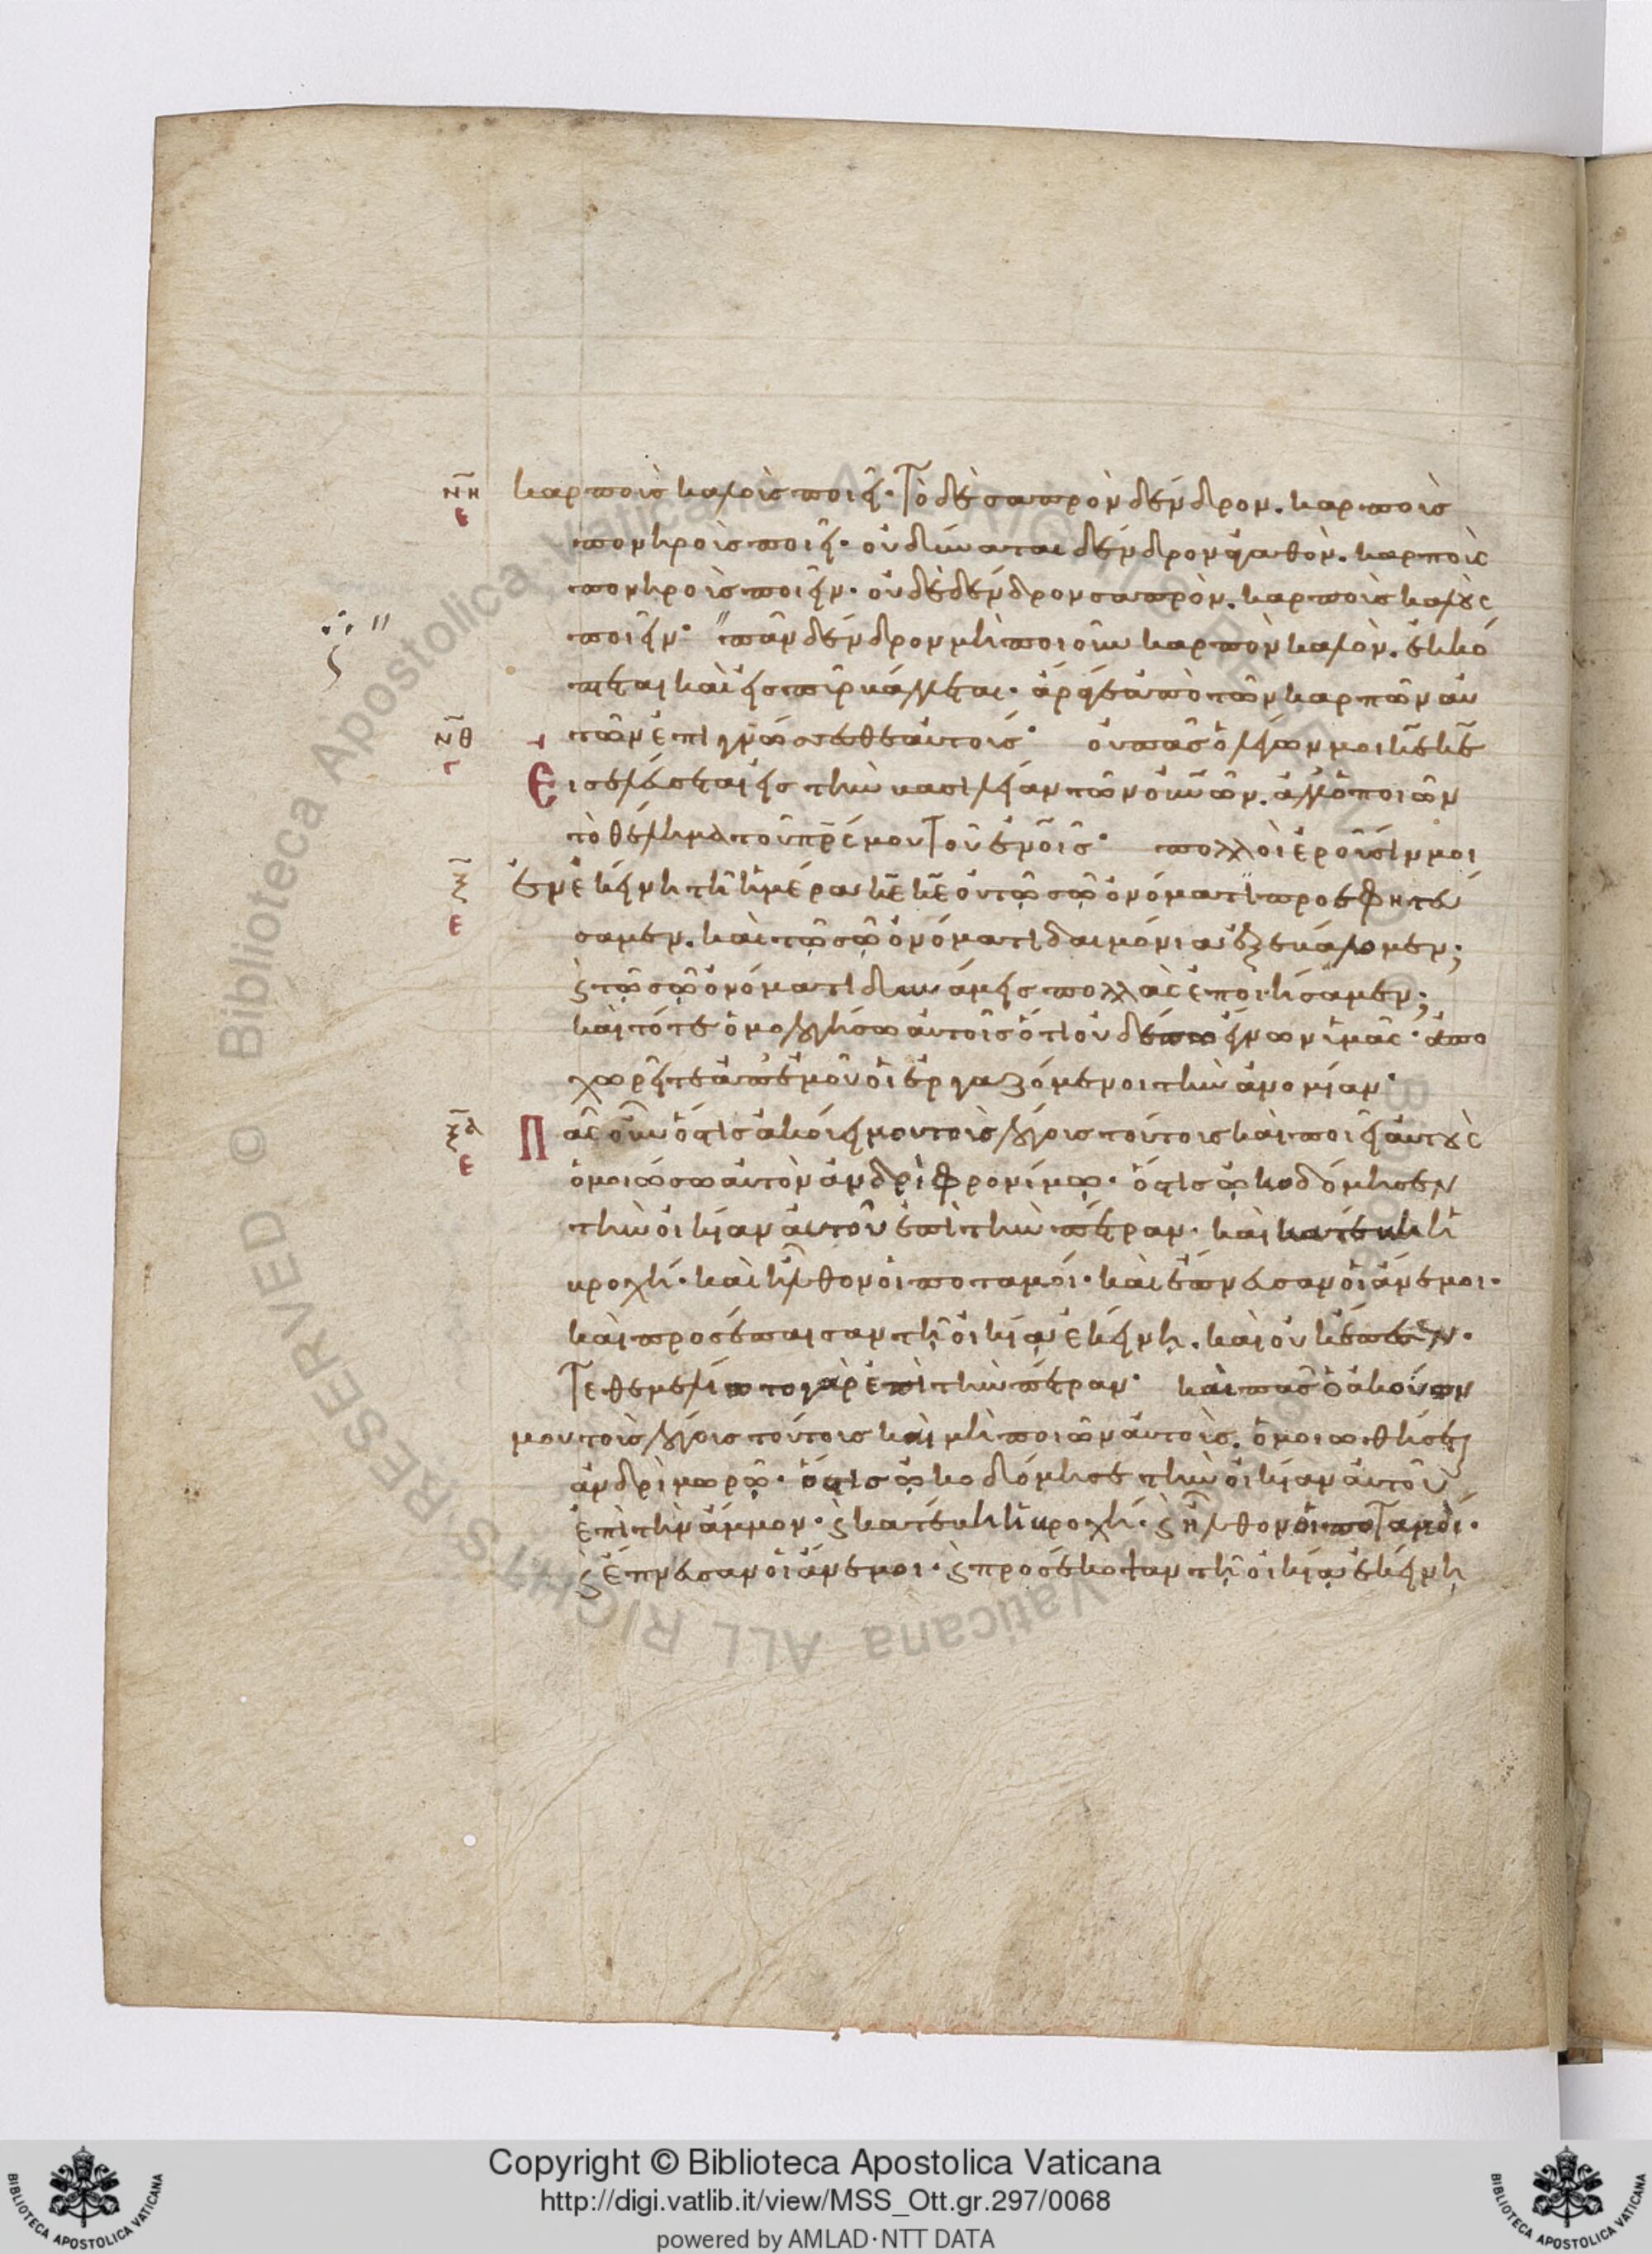 ν̅η̅ καρποὺς καλοὺς ποιεῖ· Τὸ δὲ σαπρὸν δένδρον. καρποὺς
ε
πονηροὺς ποιεῖ· οὐ δύναται δένδρον ἀγαθὸν. καρποὺς
πονηροὺς ποιεῖν· οὐδὲ δένδρον σαπρὸν. καρποὺς καλοὺς
ποιεῖν· πᾶν δένδρον μὴ ποιοῦν καρπὸν καλὸν. ἐκκό
πτεται καὶ εἰς πῦρ βάλλεται· ἄρα γε ἀπὸ τῶν καρπῶν αὐ
ν̅θ̅ τῶν ἐπιγνώσεσθε αὐτούς· οὐ πᾶς ὁ λέγων μοι κ̅ε̅ κ̅ε̅
Εἰσελεύσεται εἰς τὴν βασιλείαν τῶν ο̅υ̅ν̅ῶν. ἀλλ' ὁ ποιῶν
τὸ θέλημα τοῦ π̅ρ̅ς̅ μου Τοῦ ἐν ο̅υ̅ν̅οῖς· πολλοὶ ἐροῦσίν μοι
ξ̅ ἐν ἐκείνη τῆ ἡμέρα κ̅ε̅ κ̅ε̅ οὐ τῷ σῷ ὀνόματι προεφητεύ
ε
σαμεν. καὶ τῷ σῷ ὀνόματι δαιμόνια ἐξεβάλομεν;
ϗ τῷ σῷ ὀνόματι δυνάμεις πολλὰς ἐποιήσαμεν;
καὶ τότε ὁμολογήσω αὐτοῖς ὅτι οὐδέποτε ἔγνων ὑμᾶς· ἀπο
χωρεῖτε ἀπ' ἐμοῦ οἱ ἐργαζόμενοι τὴν ἀνομίαν·
ξ̅α̅ Πᾶς οὖν ὅστις ἀκούει μου τοὺς λόγους τούτους καὶ ποιεῖ αὐτοὺς
ε
ὁμοιώσω αὐτὸν ἀνδρὶ φρονίμῳ· ὅστις ᾠκοδόμησεν
τὴν οἰκίαν αὐτοῦ ἐπὶ τὴν πέτραν· καὶ κατέβη ἡ
βροχή· καὶ ἦλθον οἱ ποταμοί· καὶ ἔπνευσαν οἱ ἄνεμοι·
καὶ προσέπεσαν τῇ οἰκίᾳ ἐκείνῃ. καὶ οὐκ ἔπεσεν·
Τεθεμελίωτο γὰρ ἐπὶ τὴν πέτραν· καὶ πᾶς ὁ ἀκούων
μου τοὺς λόγους τούτους καὶ μὴ ποιῶν αὐτοὺς. ὁμοιωθήσεται
ἀνδρὶ μωρῷ· ὅστις ᾠκοδόμησε τὴν οἰκίαν αὐτοῦ
ἐπὶ τὴν ἄμμον· ϗ κατέβη ἡ βροχή· ϗ ἦλθον οἱ ποταμοί·
ϗ ἔπνευσαν οἱ ἄνεμοι· ϗ προσέκοψαν τῇ οἰκίᾳ ἐκείνῃ
Biblioteca Apostolica Vaticana ALL RIGHTS RESERVED ©
Copyright © Biblioteca Apostolica Vaticana
http://digi.vatlib.it/view/MSS_Ott.gr.297/0068
powered by AMLAD·NTT DATA
BIBLIOTECA APOSTOLICA VATICANA
BIBLIOTECA APOSTOLICA VATICANA